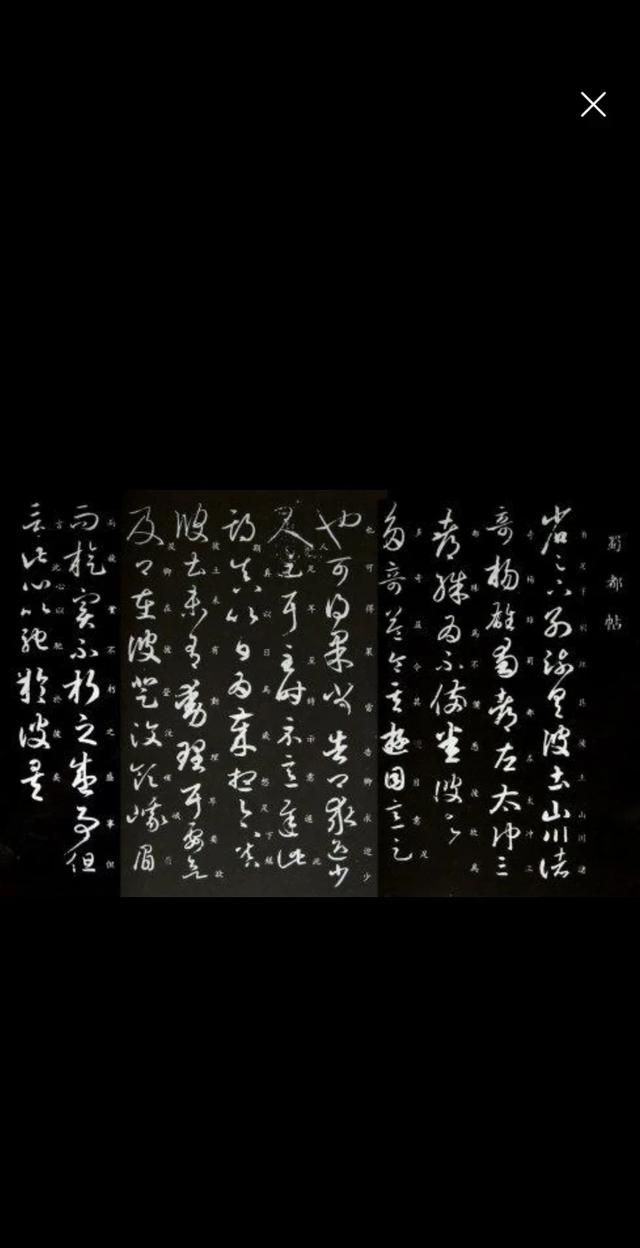 蜀都帖
省足下別疏具彼土山川諸
奇楊雄蜀都左太沖三
都殊為不備悉彼故為
多奇益令其遊目意足
也可得果當告卿求迎少
人足耳至時示意遲此
期真以日為歲想足下鎮
彼土未有動理耳要欲
及卿在彼登汶領峨眉
而旋實不朽之盛事但
言此心以馳於彼矣